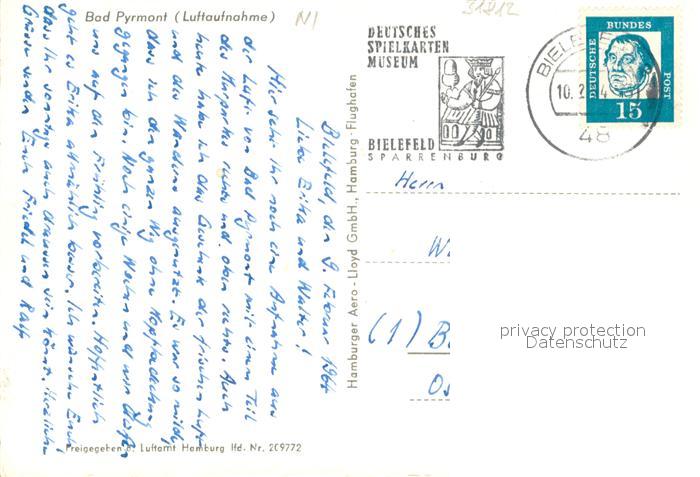 Bad Pyrmont (Luftaufnahme)
N1
31812
DEUTSCHES
SPIELKARTEN
MUSEUM
BIELEFELD
SPARRENBURG
BIELEFE
10. 2.
48
DEUTSCHE
BUNDES
POST
15
Herrn
W
(1) B
Os
privacy protection
Datenschutz
Hamburger Aero - Lloyd GmbH., Hamburg - Flughafen
Bielefeld, den 9. Februar 1964
Liebe Erika und Walter!
Hier seht Ihr noch eine Aufnahme aus
der Luft von Bad Pyrmont mit einem Teil
des Kurparks rechts und oben rechts. Auch
heute habe ich das Geschenk der frischen Luft
und des Wanderns ausgenutzt. Es war so mild,
dass ich den ganzen Weg ohne Kopfbedeckung
gegangen bin. Noch einige Wochen und wir dürfen
uns auf den Frühling vorbereiten. Hoffentlich
geht es Erika allmählich besser. Ich wünsche Euch,
dass Ihr sonntags auch draussen sein könnt. Herzliche
Grüsse senden Euch Friedel und Ralf
Freigegeben d. Luftamt Hamburg lfd. Nr. 209772